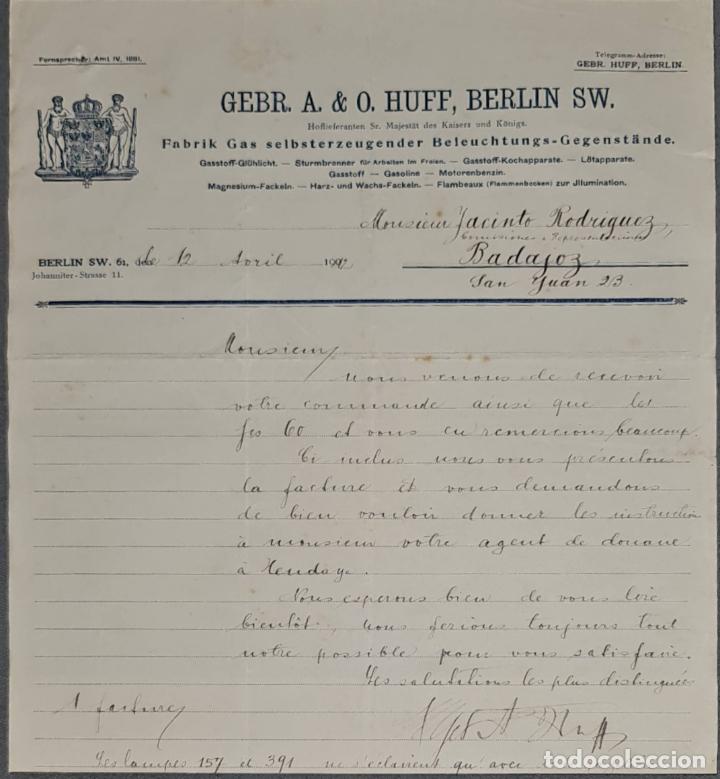 Fernsprecher: Amt IV, 1881.
Telegramm-Adresse:
GEBR. HUFF, BERLIN.
GEBR. A. & O. HUFF, BERLIN SW.
Hoflieferanten Sr. Majestät des Kaisers und Königs.
Fabrik Gas selbsterzeugender Beleuchtungs-Gegenstände.
Gasstoff-Glühlicht. — Sturmbrenner für Arbeiten im Freien. — Gasstoff-Kochapparate. — Lötapparate.
Gasstoff — Gasoline — Motorenbenzin.
Magnesium-Fackeln. — Harz- und Wachs-Fackeln. — Flambeaux (Flammenbecken) zur Jllumination.
Monsieur Jacinto Rodriguez,
Comisiones Representaciones
BERLIN SW. 61, den le 12 Avril 190
Badajoz,
Johanniter-Strasse 11.
San Juan 23.
Monsieur,
Nous venons de recevoir
votre commande ainsi que les
frs 60 et vous en remercions beaucoup.
Ci inclus nous vous présentons
la facture et vous demandons
de bien vouloir donner les instruction
à monsieur votre agent de douane
à Hendaye.
Nous esperons bien de vous lire
bientôt, nous ferions toujours tout
notre possible pour vous satisfaire.
Les salutations les plus distinguées
1 facture
Les lampes 157 et 391 ne s'éclairent qu'avec
todocoleccion